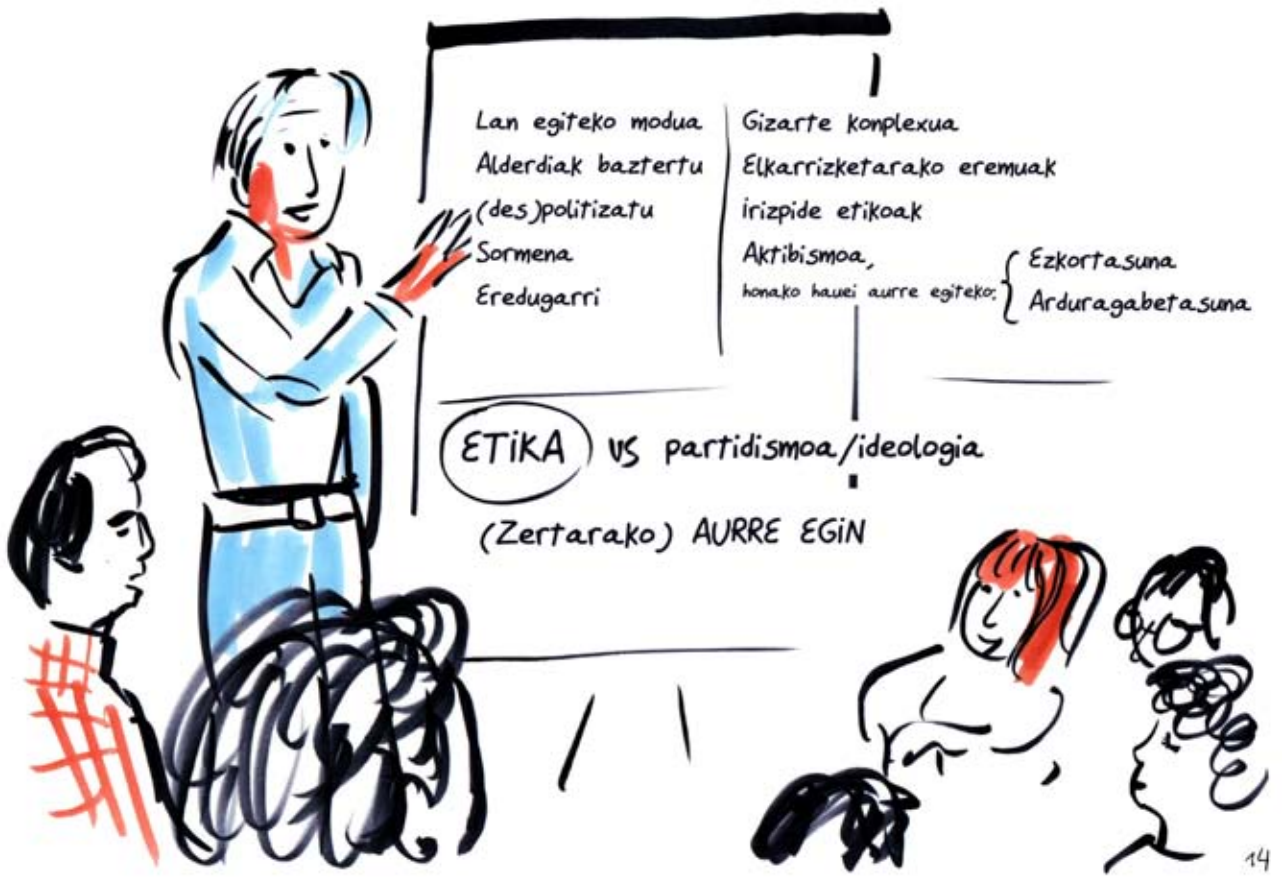 Lan egiteko modua
Alderdiak baztertu
(des)politizatu
Sormena
Eredugarri
Gizarte konplexua
Elkarrizketarako eremuak
irizpide etikoak
Aktibismoa,
honako hauei aurre egiteko:
Ezkortasuna
Arduragabetasuna
ETiKA vs partidismoa/ideologia
(Zertarako) AURRE EGiN
14